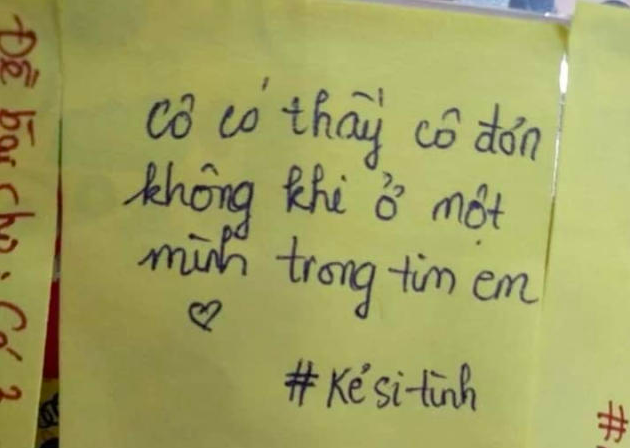 cô có thấy cô đơn
không khi ở một
mình trong tim em
♡
#Kẻ si tình
Đề bài cho: Có 2
#